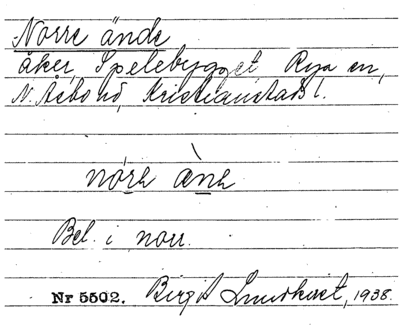 Norre ände
åker, Spelebygget Rya sn,
N. Åsbo hd, Kristianstads l.
nórə ànə
Bel. i norr.
Nr 5502. Birgit Lundkvist, 1938.